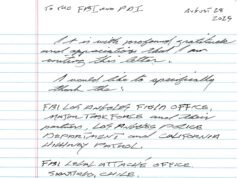 TO THE FBI AND PDI
AUGUST 28
2024
It is with profound gratitude
and appreciation that I am
writing this letter.
I would like to specifically
thank the:
FBI LOS ANGELES FIELD OFFICE,
MAJOR TASK FORCE and their
parties, LOS ANGELES POLICE
DEPARTMENT and CALIFORNIA
HIGHWAY PATROL.
FBI LEGAL ATTACHÉ OFFICE
SANTIAGO, CHILE.